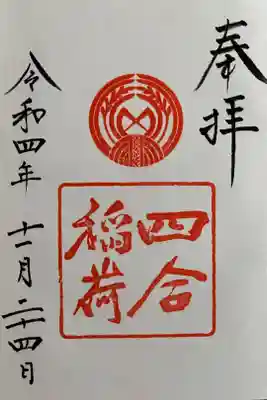 奉拝
四合
稲荷
令和四年十一月二十四日